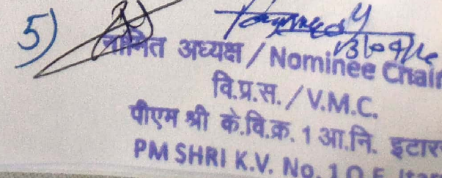 5)
नामित अध्यक्ष / Nominee Chair
वि.प्र.स. / V.M.C.
पीएम श्री के.वि.क्र. 1 आ.नि. इटार
PM SHRI K.V. No. 1 O.F. Itar